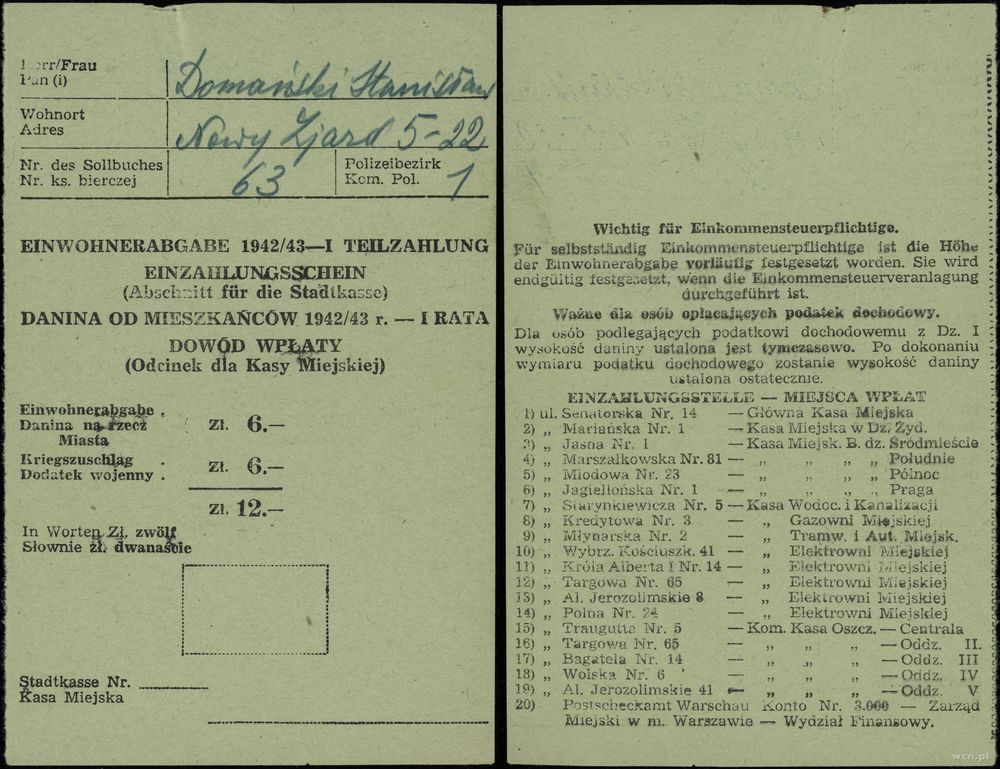 Herr/Frau
Pan (i)
Domański Stanisław
Wohnort
Adres
Nowy Zjazd 5-22
Nr. des Sollbuches
Nr. ks. bierczej
63
Polizeibezirk
Kom. Pol.
1
EINWOHNERABGABE 1942/43—I TEILZAHLUNG
EINZAHLUNGSSCHEIN
(Abschnitt für die Stadtkasse)
DANINA OD MIESZKAŃCÓW 1942/43 r. — I RATA
DOWÓD WPŁATY
(Odcinek dla Kasy Miejskiej)
Einwohnerabgabe .
Danina na rzecz
Miasta
Zł. 6.—
Kriegszuschlag .
Dodatek wojenny .
Zł. 6.—
Zł. 12.—
In Worten Zł. zwölf
Słownie zł. dwanaście
Stadtkasse Nr.
Kasa Miejska
Wichtig für Einkommensteuerpflichtige.
Für selbstständig Einkommensteuerpflichtige ist die Höhe
der Einwohnerabgabe vorläufig festgesetzt worden. Sie wird
endgültig festgesetzt, wenn die Einkommensteuerveranlagung
durchgeführt ist.
Ważne dla osób opłacających podatek dochodowy.
Dla osób podlegających podatkowi dochodowemu z Dz. I
wysokość daniny ustalona jest tymczasowo. Po dokonaniu
wymiaru podatku dochodowego zostanie wysokość daniny
ustalona ostatecznie.
EINZAHLUNGSSTELLE — MIEJSCA WPŁAT
1) ul. Senatorska Nr. 14 — Główna Kasa Miejska
2) „ Mariańska Nr. 1 — Kasa Miejska w Dz. Żyd.
3) „ Jasna Nr. 1 — Kasa Miejsk. B. dz. Śródmieście
4) „ Marszałkowska Nr. 81 — „ „ „ „ Południe
5) „ Miodowa Nr. 23 — „ „ „ „ Północ
6) „ Jagiellońska Nr. 1 — „ „ „ „ Praga
7) „ Starynkiewicza Nr. 5 — Kasa Wodoc. i Kanalizacji
8) „ Kredytowa Nr. 3 — „ Gazowni Miejskiej
9) „ Młynarska Nr. 2 — „ Tramw. i Aut. Miejsk.
10) „ Wybrz. Kościuszk. 41 — „ Elektrowni Miejskiej
11) „ Króla Alberta I Nr. 14 — „ Elektrowni Miejskiej
12) „ Targowa Nr. 65 — „ Elektrowni Miejskiej
13) „ Al. Jerozolimskie 8 — „ Elektrowni Miejskiej
14) „ Polna Nr. 24 — „ Elektrowni Miejskiej
15) „ Traugutta Nr. 5 — Kom. Kasa Oszcz. — Centrala
16) „ Targowa Nr. 65 — „ „ „ — Oddz. II.
17) „ Bagatela Nr. 14 — „ „ „ — Oddz. III
18) „ Wolska Nr. 6 — „ „ „ — Oddz. IV
19) „ Al. Jerozolimskie 41 — „ „ „ — Oddz. V
20) Postscheckamt Warschau Konto Nr. 3.000 — Zarząd
Miejski w m. Warszawie — Wydział Finansowy.
wcn.pl